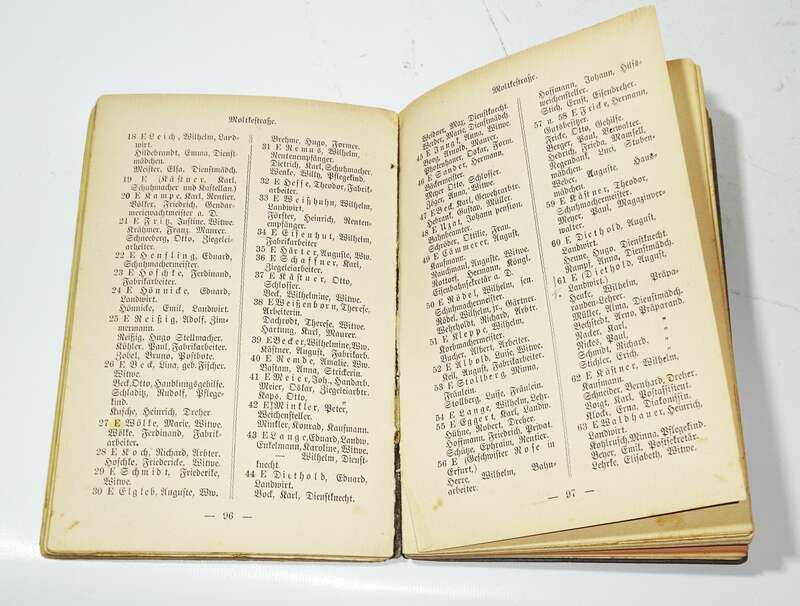 Moltkestraße.
18 E Leich, Wilhelm, Land-
wirt.
Hildebrandt, Emma, Dienst-
mädchen.
Meister, Elsa, Dienstmädch.
19 E (Kästner, Karl,
Schuhmacher und Kastellan.)
20 E Kampe, Karl, Rentier.
Völker, Friedrich, Gendar-
meriewachtmeister a. D.
21 E Fritz, Justine, Witwe.
Krähner, Franz, Maurer.
Schneeberg, Otto, Ziegelei-
arbeiter.
22 E Henfling, Eduard,
Schuhmachermeister.
23 E Hoschke, Ferdinand,
Fabrikarbeiter.
24 E Hönnicke, Eduard,
Landwirt.
Hönnicke, Emil, Landwirt.
25 E Reißig, Adolf, Zim-
mermann.
Reißig, Hugo, Stellmacher.
Köhler, Paul, Fabrikarbeiter.
Zobel, Bruno, Postbote.
26 E Beck, Lina, geb. Fischer,
Witwe.
Beck, Otto, Handlungsgehilfe.
Schladitz, Rudolf, Pflege-
kind.
Kusche, Heinrich, Dreher
27 E Wölke, Marie, Witwe.
Wölke, Ferdinand, Fabrik-
arbeiter.
28 E Koch, Richard, Arbter.
Hoschke, Friedericke, Witwe.
29 E Schmidt, Friederike,
Witwe.
30 E Elgleb, Auguste, Ww.
Brehme, Hugo, Former.
31 E Remus, Wilhelm,
Rentenempfänger.
Dietrich, Karl, Schuhmacher.
Wenke, Willy, Pflegekind.
32 E Hesse, Theodor, Fabrik-
arbeiter.
33 E Weißhuhn, Wilhelm,
Landwirt.
Förster, Heinrich, Renten-
empfänger.
34 E Eisenhut, Wilhelm,
Fabrikarbeiter
35 E Härter, Auguste, Ww.
36 E Schaffner, Karl,
Ziegeleiarbeiter.
37 E Kästner, Otto,
Schlosser.
Beck, Wilhelmine, Witwe.
38 E Weißenborn, Therese,
Arbeiterin.
Dachrodt, Therese, Witwe.
Hartung, Karl, Maurer.
39 E Becker, Wilhelmine, Ww.
Kästner, August, Fabrikarb.
40 E Remde, Amalie, Ww.
Bastam, Anna, Strickerin.
41 E Meier, Joh., Handarb.
Meier, Oskar, Ziegeleiarbtr.
Kaps, Otto, "
42 E Minkler, Peter,
Weichensteller.
Minkler, Konrad, Kaufmann.
43 E Lange, Eduard, Landw.
Enkelmann, Karoline, Witwe.
— Wilhelm, Dienst-
knecht.
44 E Diethold, Eduard,
Landwirt.
Bock, Karl, Dienstknecht.
— 96 —
Moltkestraße.
Weidner, Max, Dienstknecht.
Weber, Marie, Dienstmädch.
45 E Jungk, Anna, Witwe.
Bang, Arnold, Maurer.
Photenhauer, Oskar, Form.
46 E Sander, Hermann,
Bäckermeister.
Meyer Otto, Schlosser.
Zöger, Anna, Witwe.
47 E Beck, Karl, Gewehrarbtr.
Hefrank, Gustav, Müller.
48 E Utzat, Johann pension.
Bahnbeamter.
Schröder, Ottilie, Frau.
49 E Cämmerer, August,
Kaufmann.
Rauchmaul, Auguste, Witwe.
Rottorf, Hermann, Köngl.
Eisenbahnsekretär a. D.
50 E Rödel, Wilhelm, sen.
Schuhmachermeister.
Rödel, Wilhelm, jr., Gärtner.
Wehrholdt, Richard, Arbtr.
51 E Kleppe, Wilhelm,
Korbmachermeister.
Bucher, Albert, Arbeiter.
52 E Albold, Luise, Witwe.
Keil, August, Fabrikarbeiter.
53 E Stolberg, Minna,
Fräulein.
Stolberg, Luise, Fräulein.
54 E Lange, Wilhelm, Lehr.
55 E Eggert, Karl, Landw.
Hühne, Robert, Dreher.
Hoffmann, Friedrich, Privat.
Schütze, Ephraim, Rentier.
56 E (Geschwister Rose in
Erfurt.)
Herre, Wilhelm, Bahn-
arbeiter.
Hoffmann, Johann, Hilfs-
weichensteller.
Stich, Ernst, Eisendreher.
57 u. 58 E Fricke, Hermann,
Gutsbesitzer.
Fricke, Otto, Gehilfe.
Berger, Paul, Verwalter.
Hedrich, Frieda, Mamsell.
Regendank, Luci, Stuben-
mädchen.
Weber, Auguste, Haus-
mädchen.
59 E Kästner, Theodor,
Schuhmachermeister.
Meyer, Paul, Magazinver-
walter.
60 E Diethold, August,
Landwirt.
Henne, Hugo, Dienstknecht.
Rumpf, Anna, Dienstmädch.
61 E (Diethold, August,
Landwirt.)
Henke, Wilhelm, Präpa-
randen-Lehrer.
Müller, Alma, Dienstmädch.
Bechstedt, Arno, Präparand.
Nacker, Karl, "
Nicks, Paul, "
Schmidt, Richard, "
Stichler, Erich, "
62 E Kästner, Wilhelm,
Kaufmann.
Schneider, Bernhard, Dreher.
Voigt, Karl, Postassistent.
Klocke, Erna, Diakonissin.
63 E Waldhauer, Heinrich,
Landwirt.
Kohlrusch, Minna, Pflegekind.
Beyer, Emil, Postsekretär.
Lehrke, Elisabeth, Witwe.
— 97 —